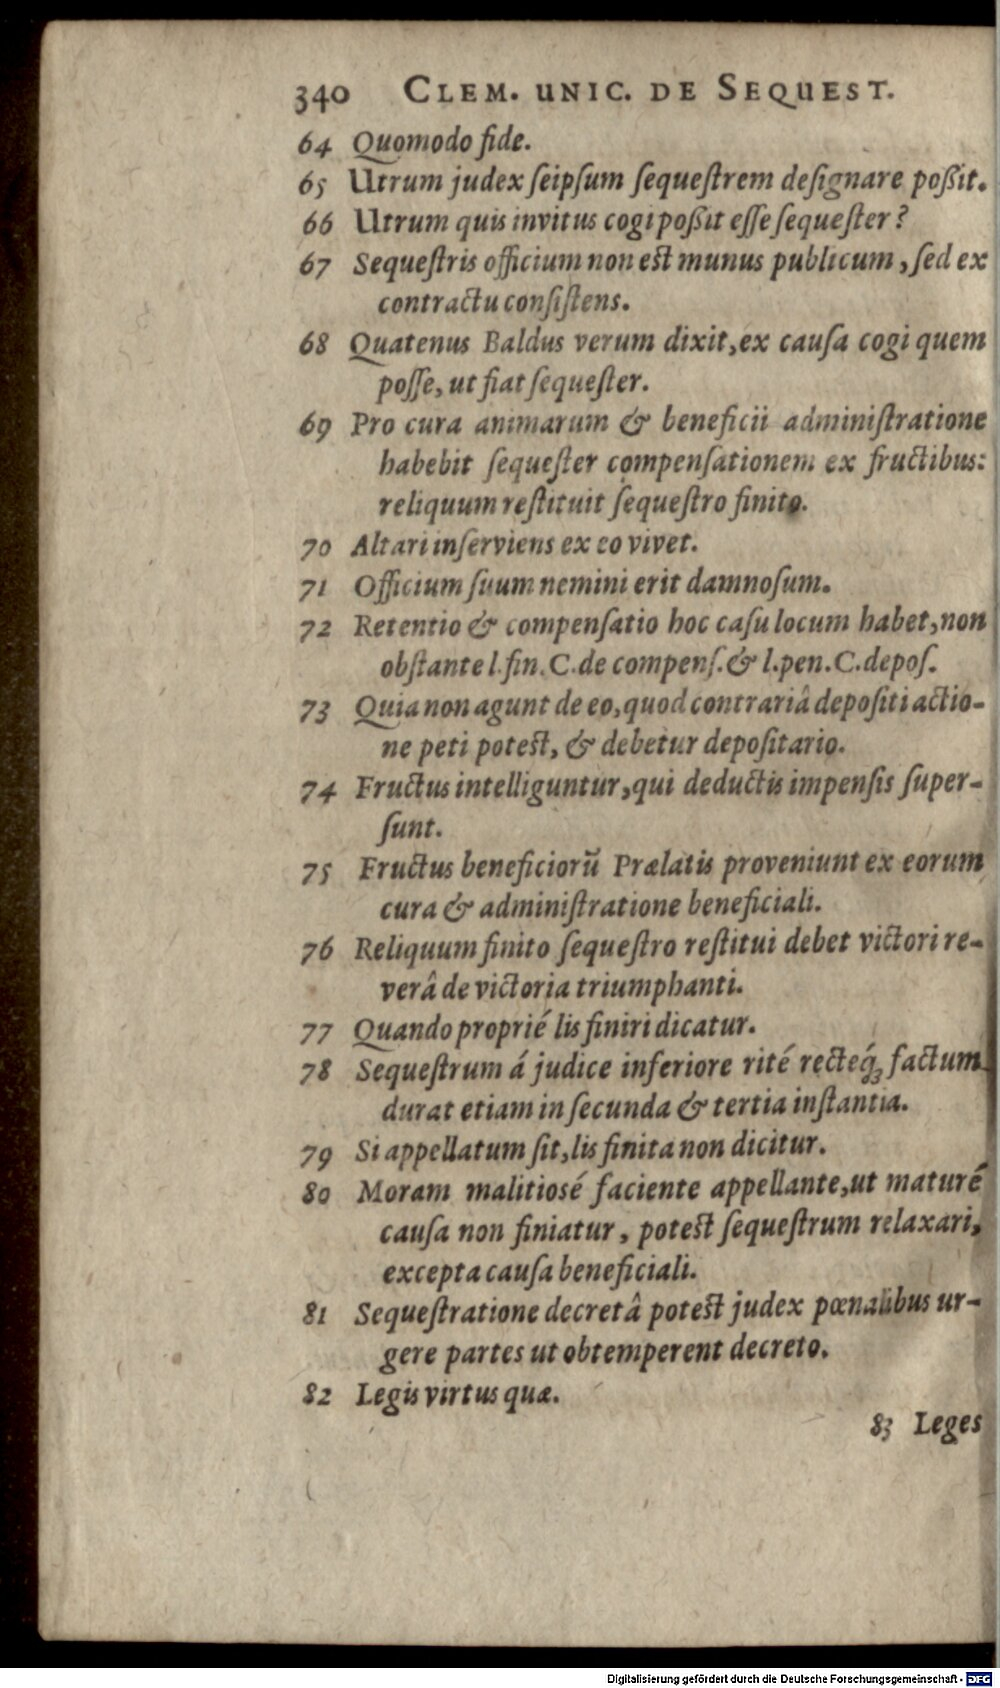 340 CLEM. UNIC. DE SEQUEST.
64 Quomodo fide.
65 Utrum judex ſeipſum ſequeſtrem deſignare poßit.
66 Utrum quis invitus cogi poßit eſſe ſequeſter?
67 Sequeſtris officium non eſt munus publicum, ſed ex
contractu conſiſtens.
68 Quatenus Baldus verum dixit, ex cauſa cogi quem
poſſe, ut fiat ſequeſter.
69 Pro cura animarum & beneficii adminiſtratione
habebit ſequeſter compenſationem ex fructibus:
reliquum reſtituit ſequeſtro finito.
70 Altari inſerviens ex eo vivet.
71 Officium ſuum nemini erit damnoſum.
72 Retentio & compenſatio hoc caſu locum habet, non
obſtante l. fin. C. de compenſ. & l. pen. C. depoſ.
73 Quia non agunt de eo, quod contrariâ depoſiti actio-
ne peti poteſt, & debetur depoſitario.
74 Fructus intelliguntur, qui deductis impenſis ſuper-
ſunt.
75 Fructus beneficiorũ Prælatis proveniunt ex eorum
cura & adminiſtratione beneficiali.
76 Reliquum finito ſequeſtro reſtitui debet victori re-
verâ de victoria triumphanti.
77 Quando proprié lis finiri dicatur.
78 Sequeſtrum á judice inferiore rité recteq́ꝫ factum
durat etiam in ſecunda & tertia inſtantia.
79 Si appellatum ſit, lis finita non dicitur.
80 Moram malitiosé faciente appellante, ut maturé
cauſa non finiatur, poteſt ſequeſtrum relaxari,
excepta cauſa beneficiali.
81 Sequeſtratione decretâ poteſt judex pœnalibus ur-
gere partes ut obtemperent decreto.
82 Legis virtus quæ.
83 Leges
Digitalisierung gefördert durch die Deutsche Forschungsgemeinschaft - DFG